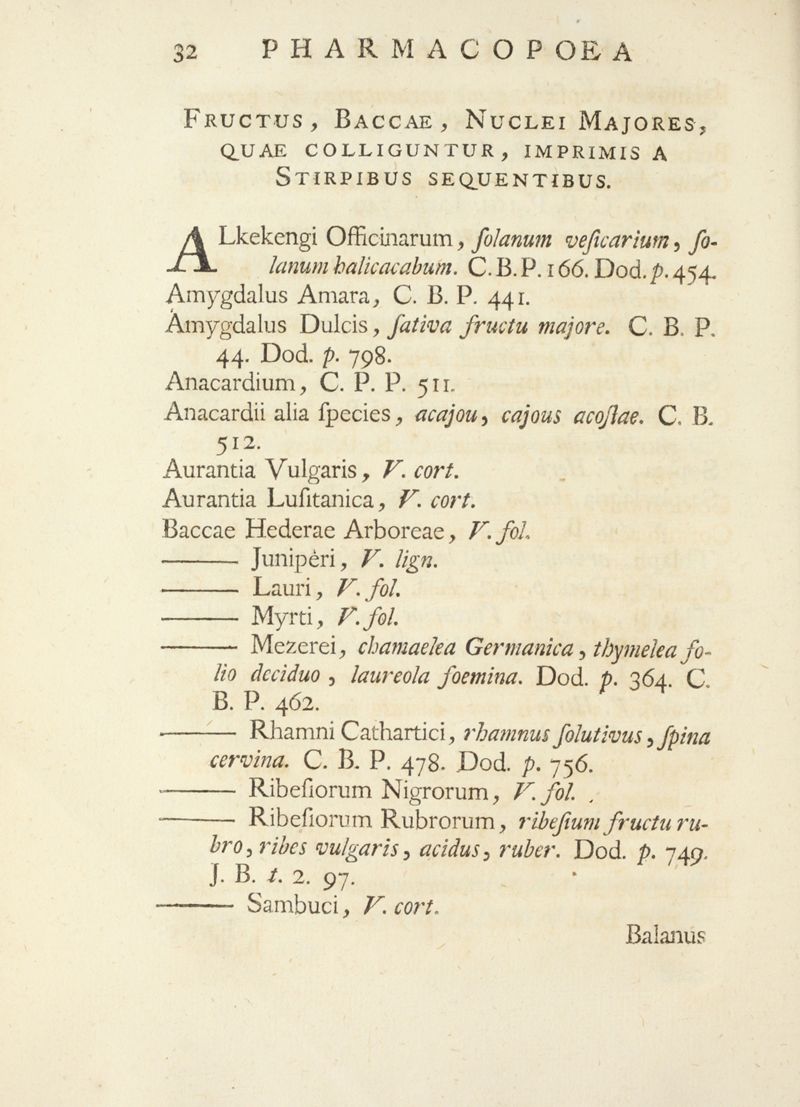 32 PHARMACOPOEA
FRUCTUS, BACCAE, NUCLEI MAJORES,
QUAE COLLIGUNTUR, IMPRIMIS A
STIRPIBUS SEQUENTIBUS.
ALkekengi Officinarum, ſolanum veſicarium, ſo-
lanum halicacabum. C. B. P. 166. Dod. p. 454.
Amygdalus Amara, C. B. P. 441.
Amygdalus Dulcis, ſativa fructu majore. C. B. P.
44. Dod. p. 798.
Anacardium, C. P. P. 511.
Anacardii alia ſpecies, acajou, cajous acoſtae. C. B.
512.
Aurantia Vulgaris, V. cort.
Aurantia Luſitanica, V. cort.
Baccae Hederae Arboreae, V. fol.
——— Junipèri, V. lign.
——— Lauri, V. fol.
——— Myrti, V. fol.
——— Mezerei, chamaelea Germanica, thymelea fo-
lio deciduo, laureola foemina. Dod. p. 364. C.
B. P. 462.
——— Rhamni Cathartici, rhamnus ſolutivus, ſpina
cervina. C. B. P. 478. Dod. p. 756.
——— Ribeſiorum Nigrorum, V. fol.
——— Ribeſiorum Rubrorum, ribeſium fructu ru-
bro, ribes vulgaris, acidus, ruber. Dod. p. 749.
J. B. t. 2. 97.
——— Sambuci, V. cort.
Balanus